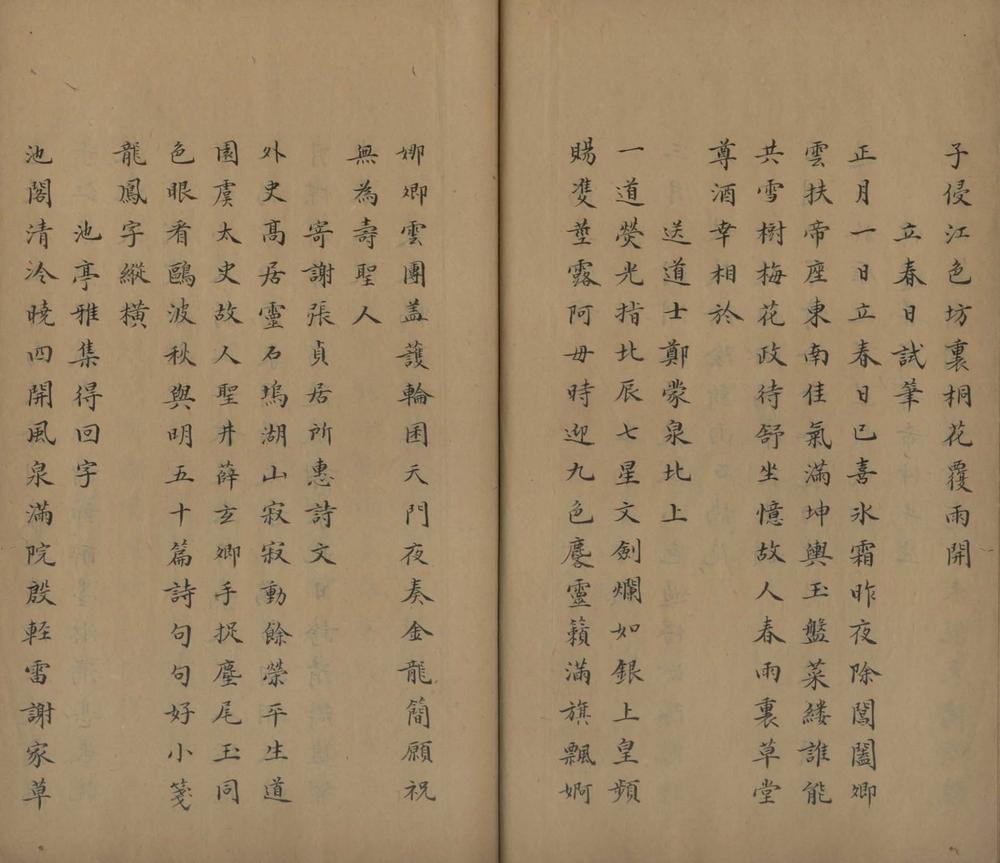 子侵江色坊裏桐花覆雨開
立春日試筆
正月一日立春日已喜氷霜昨夜除閶闔卿
雲扶帝座東南佳氣滿坤輿玉盤菜縷誰能
共雪樹梅花政待舒坐憶故人春雨裏草堂
尊酒幸相於
送道士鄭蒙泉北上
一道熒光指北辰七星文劍爛如銀上皇頻
賜雙莖露阿毋時迎九色麐靈籟滿旗飄婀
娜卿雲團盖護輪囷天門夜奏金龍簡願祝
無為壽聖人
寄謝張貞居所惠詩文
外史髙居靈石塢湖山寂寂動餘榮平生道
園虞太史故人聖井薛玄卿手捉麈尾玉同
色眼看鷗波秋與明五十篇詩句句好小箋
龍鳳字縱横
池亭雅集得回字
池閣清泠曉四開風泉滿院殷輕雷謝家草